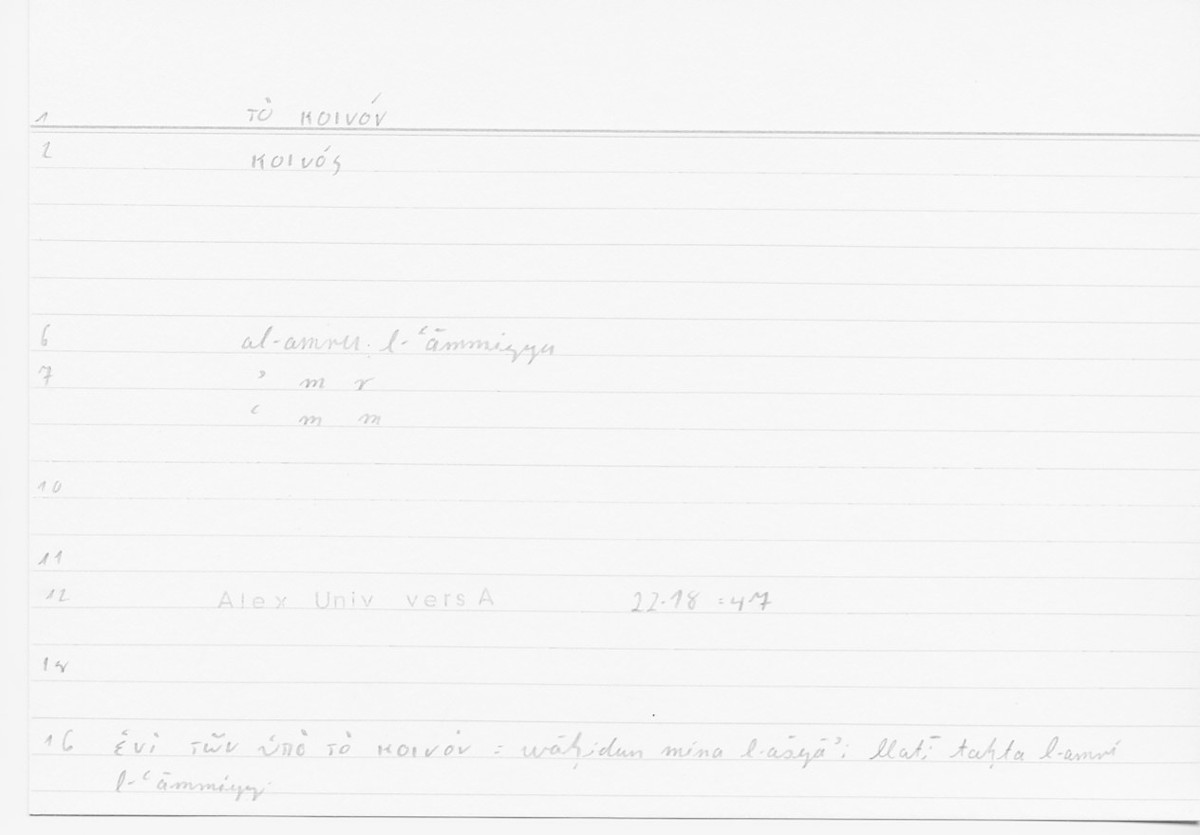 1 τὸ κοινόν
2 κοινός
6 al-amru l-ʿāmmiyyu
7 ʾ m r
ʿ m m
10
11
12 Alex Univ vers A 22.18 = 47
16 ἑνὶ τῶν ὑπὸ τὸ κοινὸν = wāḥidun mina l-ašyāʾi llatī taḥta l-amri
l-ʿāmmiyyi